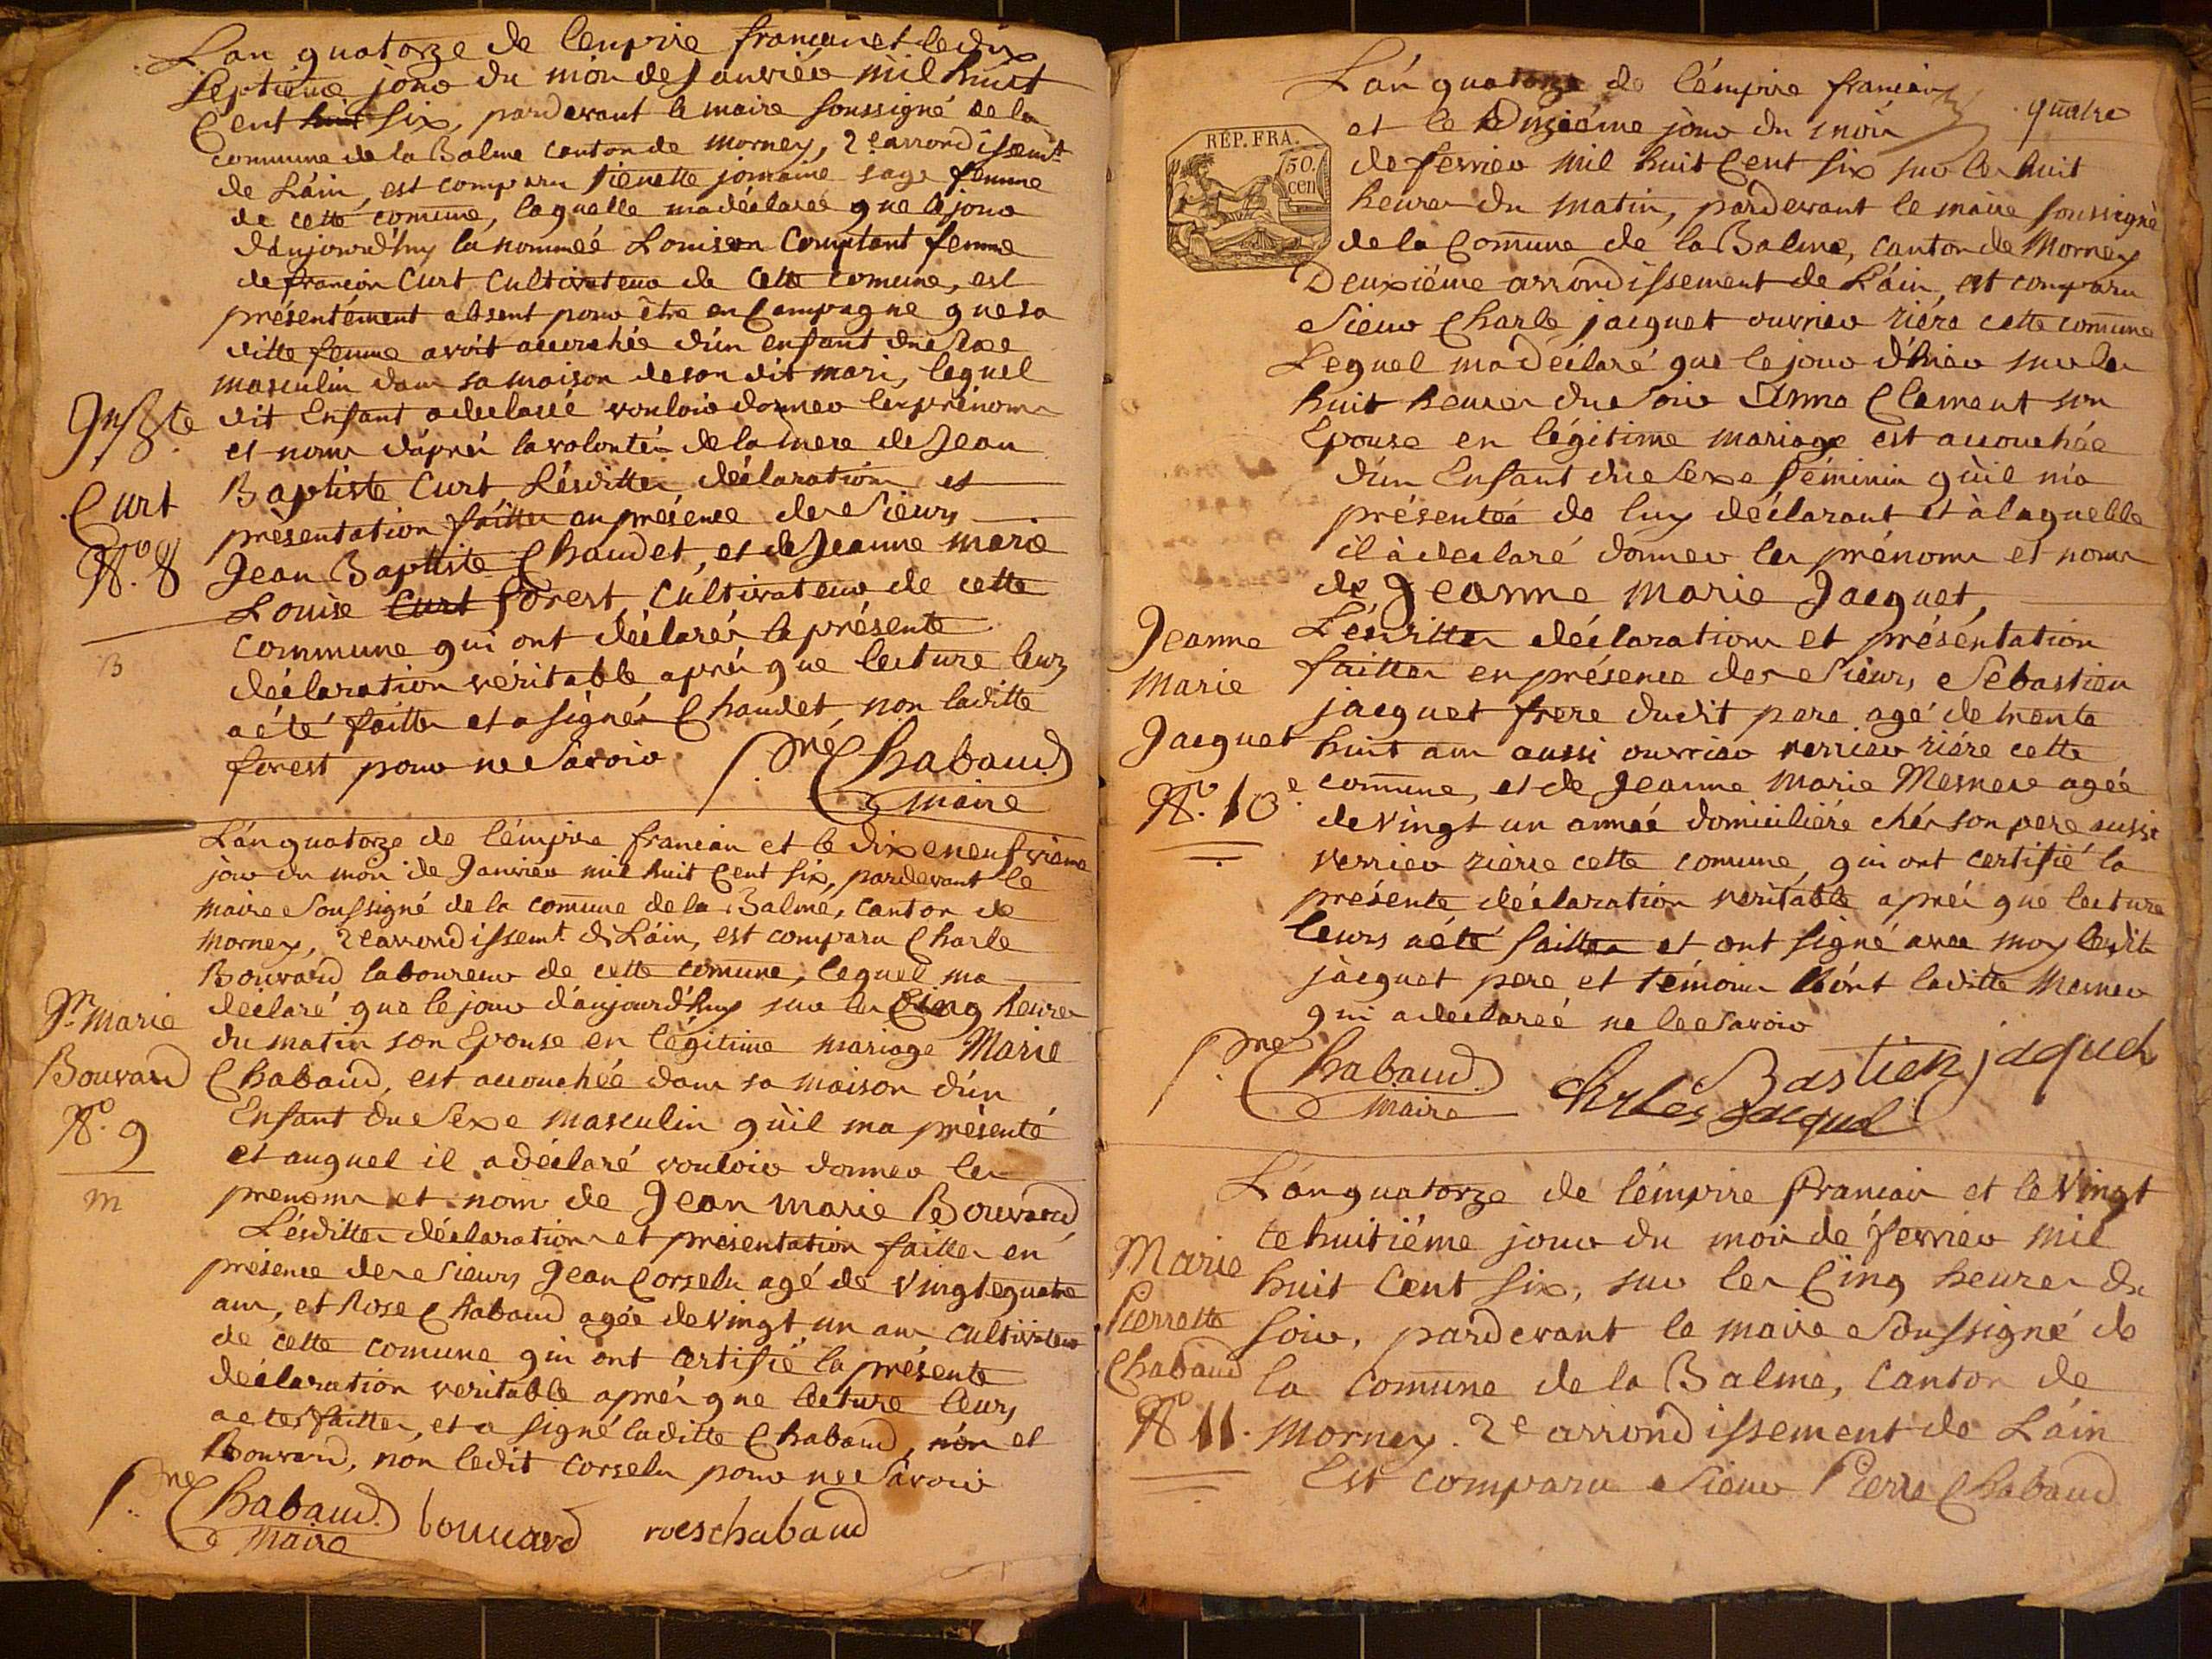 L'an quatorze de lenpire francais et le dix
Septieme jour du mois de Janvier mil huit
Cent huit six, pardevant le maire soussigné de la
commune de la Balme canton de morney, 2e arrondissemt
de L'áin, est comparu Pienette jomaine sage femme
de cette comune, laquelle ma déclareé que le jour
D'aujourd'huy la nommeé Louison Comptant femme
de francois Curt Cultivateur de Cette comune, est
présentément absent pour être en Campagne que sa
ditte femme avoit accouchée d'un enfant du Sexe
masculin dans sa maison de son dit mari, lequel
dit Enfant a declareé vouloir donner les prénoms
et noms d'aprés la volontés de la mere de Jean
Baptiste Curt, Lésdittes déclaration et
présentation faittes en présence des Sieurs
Jean Baptiste Chaudet, et de Jeanne marie
Louise Curt forest, Cultivateur de cette
commune qui ont déclarés la présente
déclaration véritable aprés que lecture leurs
a été faitte et a signés Chaudet, non laditte
forest pour ne Savoir
Pre Chabaud
maire
Jn Bte
Curt
No. 8
B
L'án quatorze de l'émpire francais et le dixeneufvieme
jour du mois de Janvier mil huit Cent six, pardevant le
maire Soussigné de la comune de la Balme, canton de
Morney, 2e arrondissemt de L'áin, est comparu Charle
Bouvard laboureur de cette comune, lequel ma
déclaré que le jour d'aujourd'huy sur les Cinq heures
du matin son Epouse en légitime mariage Marie
Chabaud, est accouchée dans sa maison d'un
Enfant du Sexe masculin qu'il ma présenté
et auquel il a déclaré vouloir donner les
prenoms et nom de Jean marie Bouvard
Lésdittes déclarations et présentation faittes en
présence des Sieurs Jean Corselu agé de Vingtequatre
ans, et Rose Chabaud agée de vingt un ans cultivateur
de cette comune qui ont certifié la présente
déclaration veritable aprés que lecture leurs
a etes faittes, et a signé laditte Chabaud, non et
Bouvard, non ledit corselu pour ne Savoir
Pre Chabaud
Maire
bouuard
roeschabaud
Jn Marie
Bouvard
No. 9
m
REP. FRA.
50.
cen
quatre
L'án quatorze de l'émpire francais
et le Dixiéme jour du mois
de fevrier mil huit Cent six sur les huit
heures du matin, pardevant le maire soussigné
de la Comune de la Balme, canton de Morney
Deuxiéme arrondissement de L'áin, est comparu
Sieur Charle jacquet ouvrier riere cette comune
Lequel ma déclaré que le jour d'hier sur les
huit heures du Soir Anne Clement son
Epouse en légitime mariage est accouchée
d'un Enfant du Sexe féminin qu'il m'a
présenteé de luy déclarant et à laquelle
il à declaré donner les prénoms et noms
de Jeanne Marie Jacquet,
Lésdittes déclarations et présentation
faittes en présence des Sieurs Sebastien
jacquet frere dudit pere agé de trente
huit ans aussi ouvrier verrier riére cette
comune, et de Jeanne Marie Mesner agée
de vingt un anneé domiciliére chés son pere aussi
verrier riérre cette comune, qui ont certifié la
présente déclaration veritable aprés que lecture
leurs a été faittes et ont signé avec moy lesdits
jacquet pere et témoins Nón't laditte Mesner
qui a declareé ne le Savoir
Pre Chabaud
maire
Bastien jaquet
Charles Jacquet
Jeanne
Marie
Jacquet
No. 10e
L'ánquatorze de l'émpire francais et le Vingt
te huitiéme jour du mois de fevrier mil
huit Cent six, sur les Cinq heures du
soir, pardevant le maire Soussigné de
la Comune de la Balme, Canton de
Morney. 2e arrondissement de L'áin
Est comparu Sieur Pierre Chabaud
Marie
Pierrette
Chabaud
No 11.